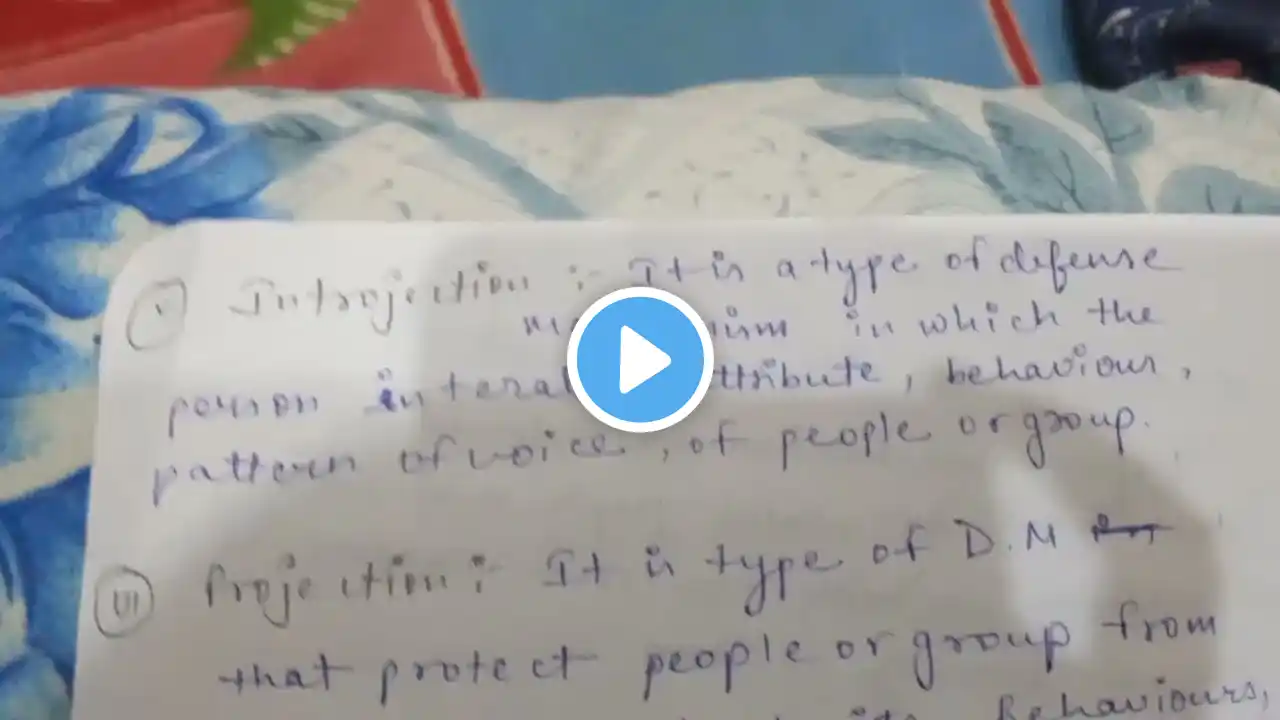 Introjection : It is a type of defense
in which the
person attribute, behaviour,
pattern of voice, of people or group.
(III) Projection : It is type of D.M
that protect people or group from
Behaviours,